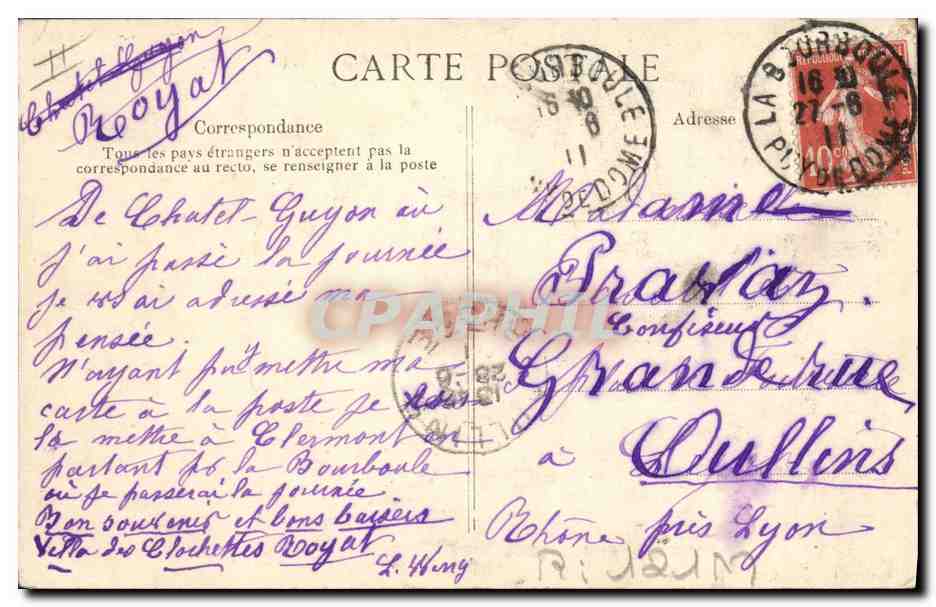 Chatel Guyon
Royat
CARTE POSTALE
Correspondance
Tous les pays étrangers n'acceptent pas la
correspondance au recto, se renseigner à la poste
Adresse
LA BOURBOULE
16 30
27 - 6
11
PUY-DE-DOME
De Chatel-Guyon où
j'ai passé la journée
je vs ai adressé ma
pensée.
N'ayant pu y mettre ma
carte à la poste je vais
la mettre à Clermont en
partant pr la Bourboule
où je passerai la journée
Bon souvenir et bons baisers
Villa des Clochettes Royat
Madame
Pravaz.
Confiseur
Grande rue
à Oullins
Rhône près Lyon
CPAPHIL
R: 121M